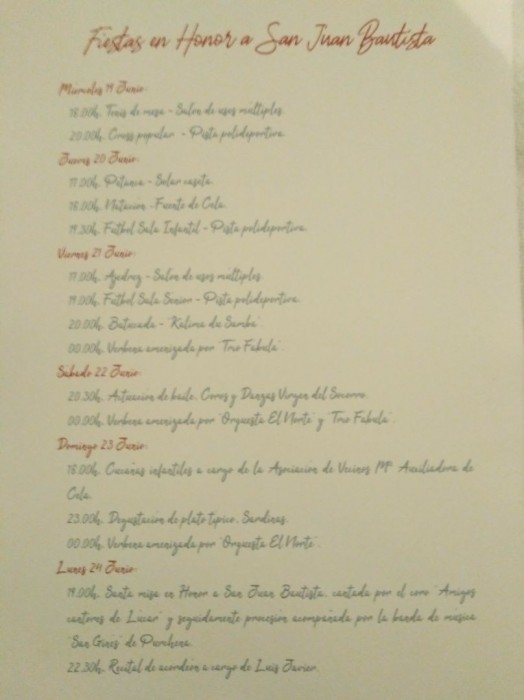 Fiestas en Honor a San Juan Bautista
Miercoles 19 Junio:
18.00h. Tenis de mesa - Salon de usos multiples.
20.00h. Cross popular - Pista polideportiva.
Jueves 20 Junio:
17.00h. Petanca - Solar caseta.
18.00h. Natacion - Fuente de Cela.
19.30h. Futbol Sala Infantil - Pista polideportiva.
Viernes 21 Junio:
17.00h. Ajedrez - Salon de usos multiples.
19.00h. Futbol Sala Senior - Pista polideportiva.
20.00h. Batucada - "Kalima du Samba".
00.00h. Verbena amenizada por "Trio Fabula".
Sabado 22 Junio:
20.30h. Actuacion de baile. Coros y Danzas Virgen del Socorro.
00.00h. Verbena amenizada por "Orquesta El Norte" y "Trio Fabula".
Domingo 23 Junio:
18.00h. Cucañas infantiles a cargo de la Asociacion de Vecinos Mª Auxiliadora de
Cela.
23.00h. Degustacion de plato tipico. Sardinas.
00.00h. Verbena amenizada por "Orquesta El Norte".
Lunes 24 Junio:
19.00h. Santa misa en Honor a San Juan Bautista, cantada por el coro "Amigos
cantores de Lucar" y seguidamente procesion acompañada por la banda de musica
"San Gines" de Purchena.
22.30h. Recital de acordeon a cargo de Luis Javier.